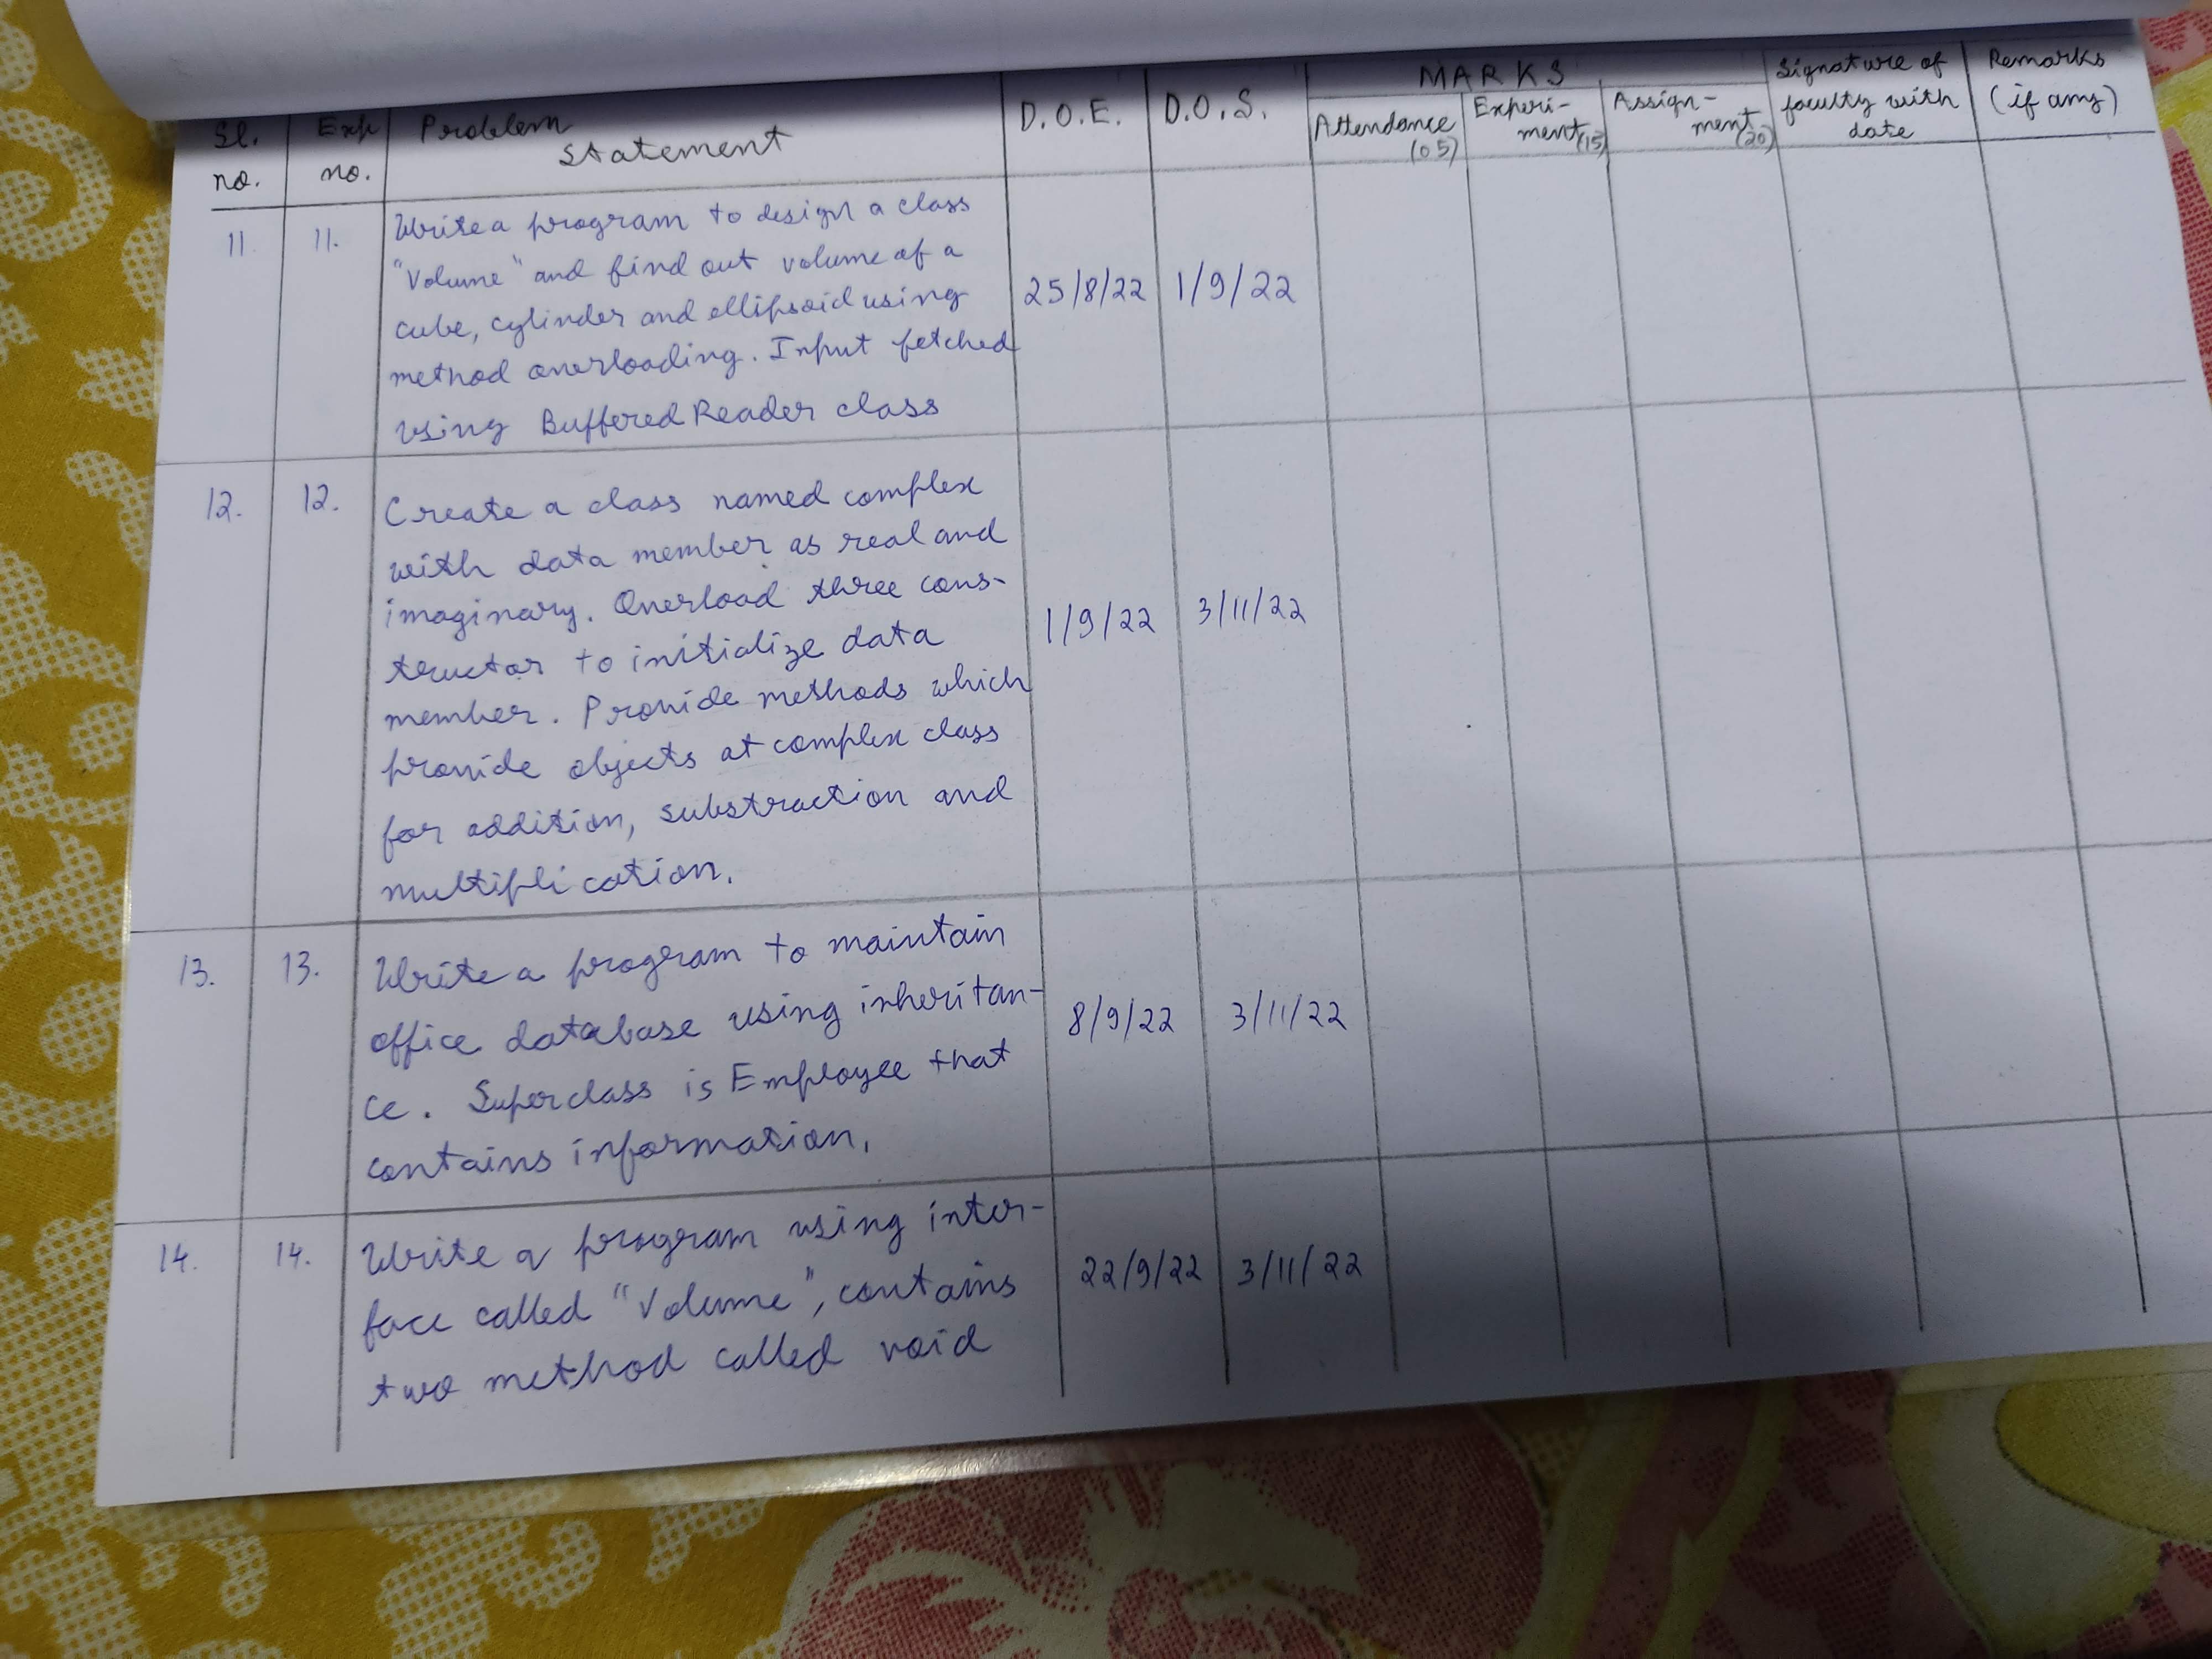 MARKS
Sl. no.
Exp no.
Problem Statement
D.O.E.
D.O.S.
Attendance (05)
Experi-
ment (15)
Assign-
ment (20)
Signature of
faculty with
date
Remarks
(if any)
11 11. 25/8/22 1/9/22
Write a program to design a class
"Volume" and find out volume of a
cube, cylinder and ellipsoid using
method overloading. Input fetched
using Buffered Reader class
12. 12. 1/9/22 3/11/22
Create a class named complex
with data member as real and
imaginary. Overload three cons-
tructor to initialize data
member. Provide methods which
provide objects at complex class
for addition, substraction and
multiplication.
13. 13. 8/9/22 3/11/22
Write a program to maintain
office database using inheritan-
ce. Superclass is Employee that
contains information.
14. 14. 22/9/22 3/11/22
Write a program using inter-
face called "Volume", contains
two method called void